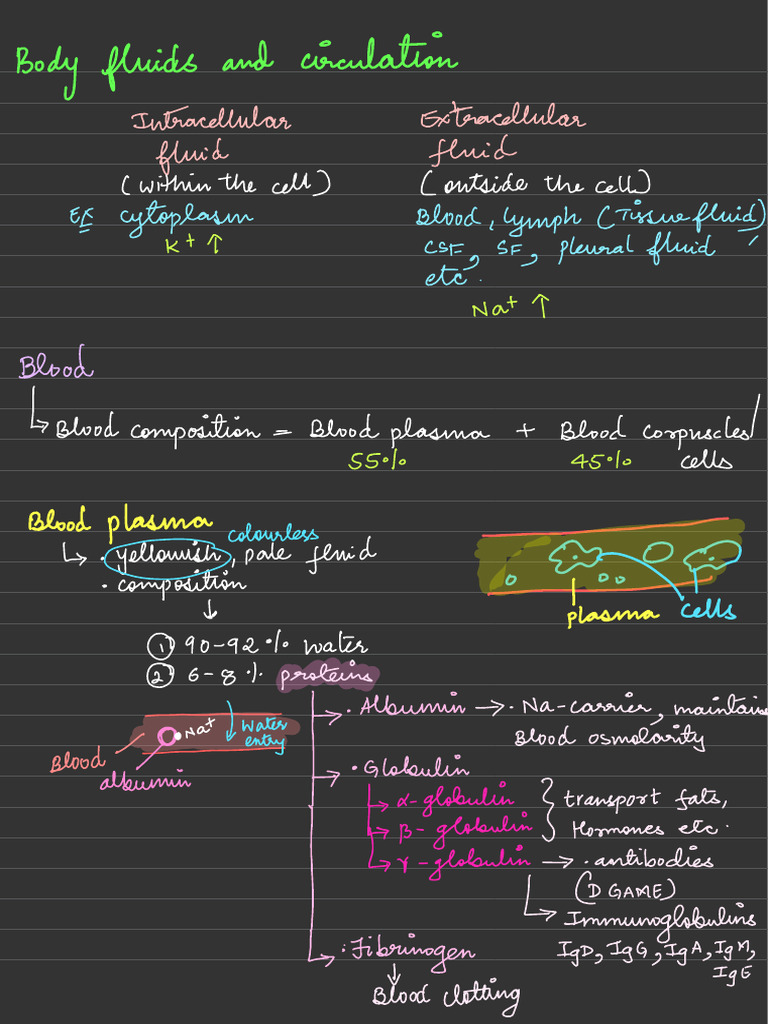 Body fluids and circulation
Intracellular Extracellular
fluid fluid
(within the cell) (outside the cell)
Ex cytoplasm Blood, lymph (Tissue fluid)
K+ ↑ CSF, SF, pleural fluid
etc.
Na+ ↑
Blood
↳ Blood composition = Blood plasma + Blood corpuscles/
55% 45% cells
Blood plasma
colourless
↳ · yellowish, pale fluid
· composition
↓
plasma cells
① 90-92% water
② 6-8% proteins
· Albumin → · Na-carrier, maintains
Blood osmolarity
Na+ water
entry
Blood
albumin
· Globulin
→ α-globulin } transport fats,
→ β-globulin Hormones etc.
→ γ-globulin → · antibodies
(D GAME)
↳ Immunoglobulins
IgD, IgG, IgA, IgM,
IgE
· Fibrinogen
↓
Blood clotting